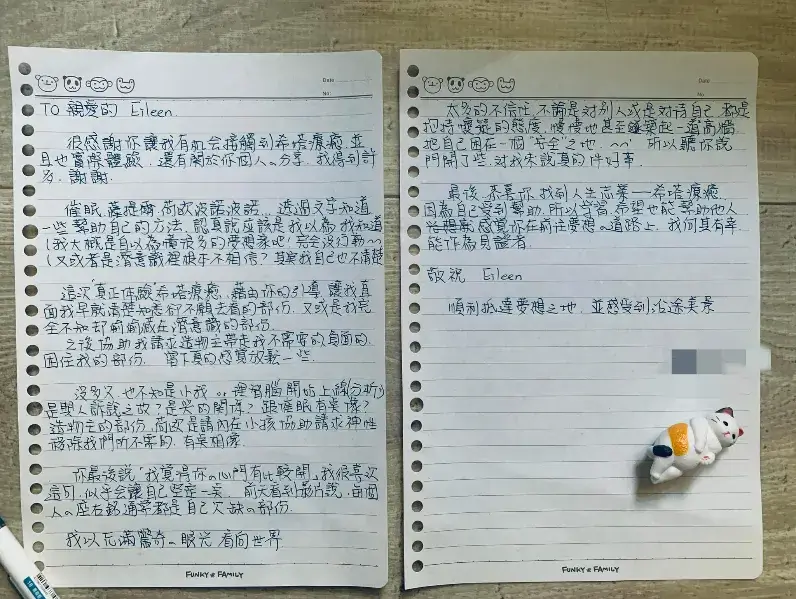 Date
No
TO 親愛的 Eileen.
很感謝你讓我有机会接觸到希塔療癒,並
且也實際体驗,還有關於你個人の分享,我得到許
多,謝謝.
催眠.薩提爾.荷歐波諾波諾...透過文字知道
一些幫助自己的方法,認真說应該是我以為我知道
(我大概是自以為懂很多的夢想家吧!完全沒行動~
(又或者是潛意識裡根本不相信?其实我自己也不清楚
這次真正体驗希塔療癒,藉由你的引導,讓我直
面我早就清楚知道卻不願去看的部份,又或是我完
全不知卻躲藏在潛意識的部份.
之後協助我請求造物主帶走我不需要的負面的.
困住我的部份,當下真的感覺放鬆一些.
沒多久,也不知是小我 or 理智腦開始上線(分析)
是與人訴說之故?是哭的關係?跟催眠有点像?
造物主的部份,荷歐是請內在小孩協助請求神性
移除我們所不需的.有点相像.
你最後說「我覺得你の心門有比較開」我很喜欢
這句,似乎会讓自己堅定一点.前天看到影片說,每個
人の座右銘通常都是自己欠缺の部份.
我以充滿驚奇の眼光看向世界
FUNKY FAMILY
Date
No
太多的不信任,不論是对别人或是对待自己,都是
抱持懷疑的態度,慢慢也甚至建築起一道高牆
把自己困在一個"安全"之地.~~ 所以聽你說
門開了些,对我來說真的件好事.
最後,恭喜你找到人生志業——希塔療癒.
因為自己受到幫助,所以学習,希望也能幫助他人
感覺你在前往夢想の道路上,我何其有幸
能作為見證者.
敬祝 Eileen
順利抵達夢想之地,並感受到沿途美景
FUNKY FAMILY